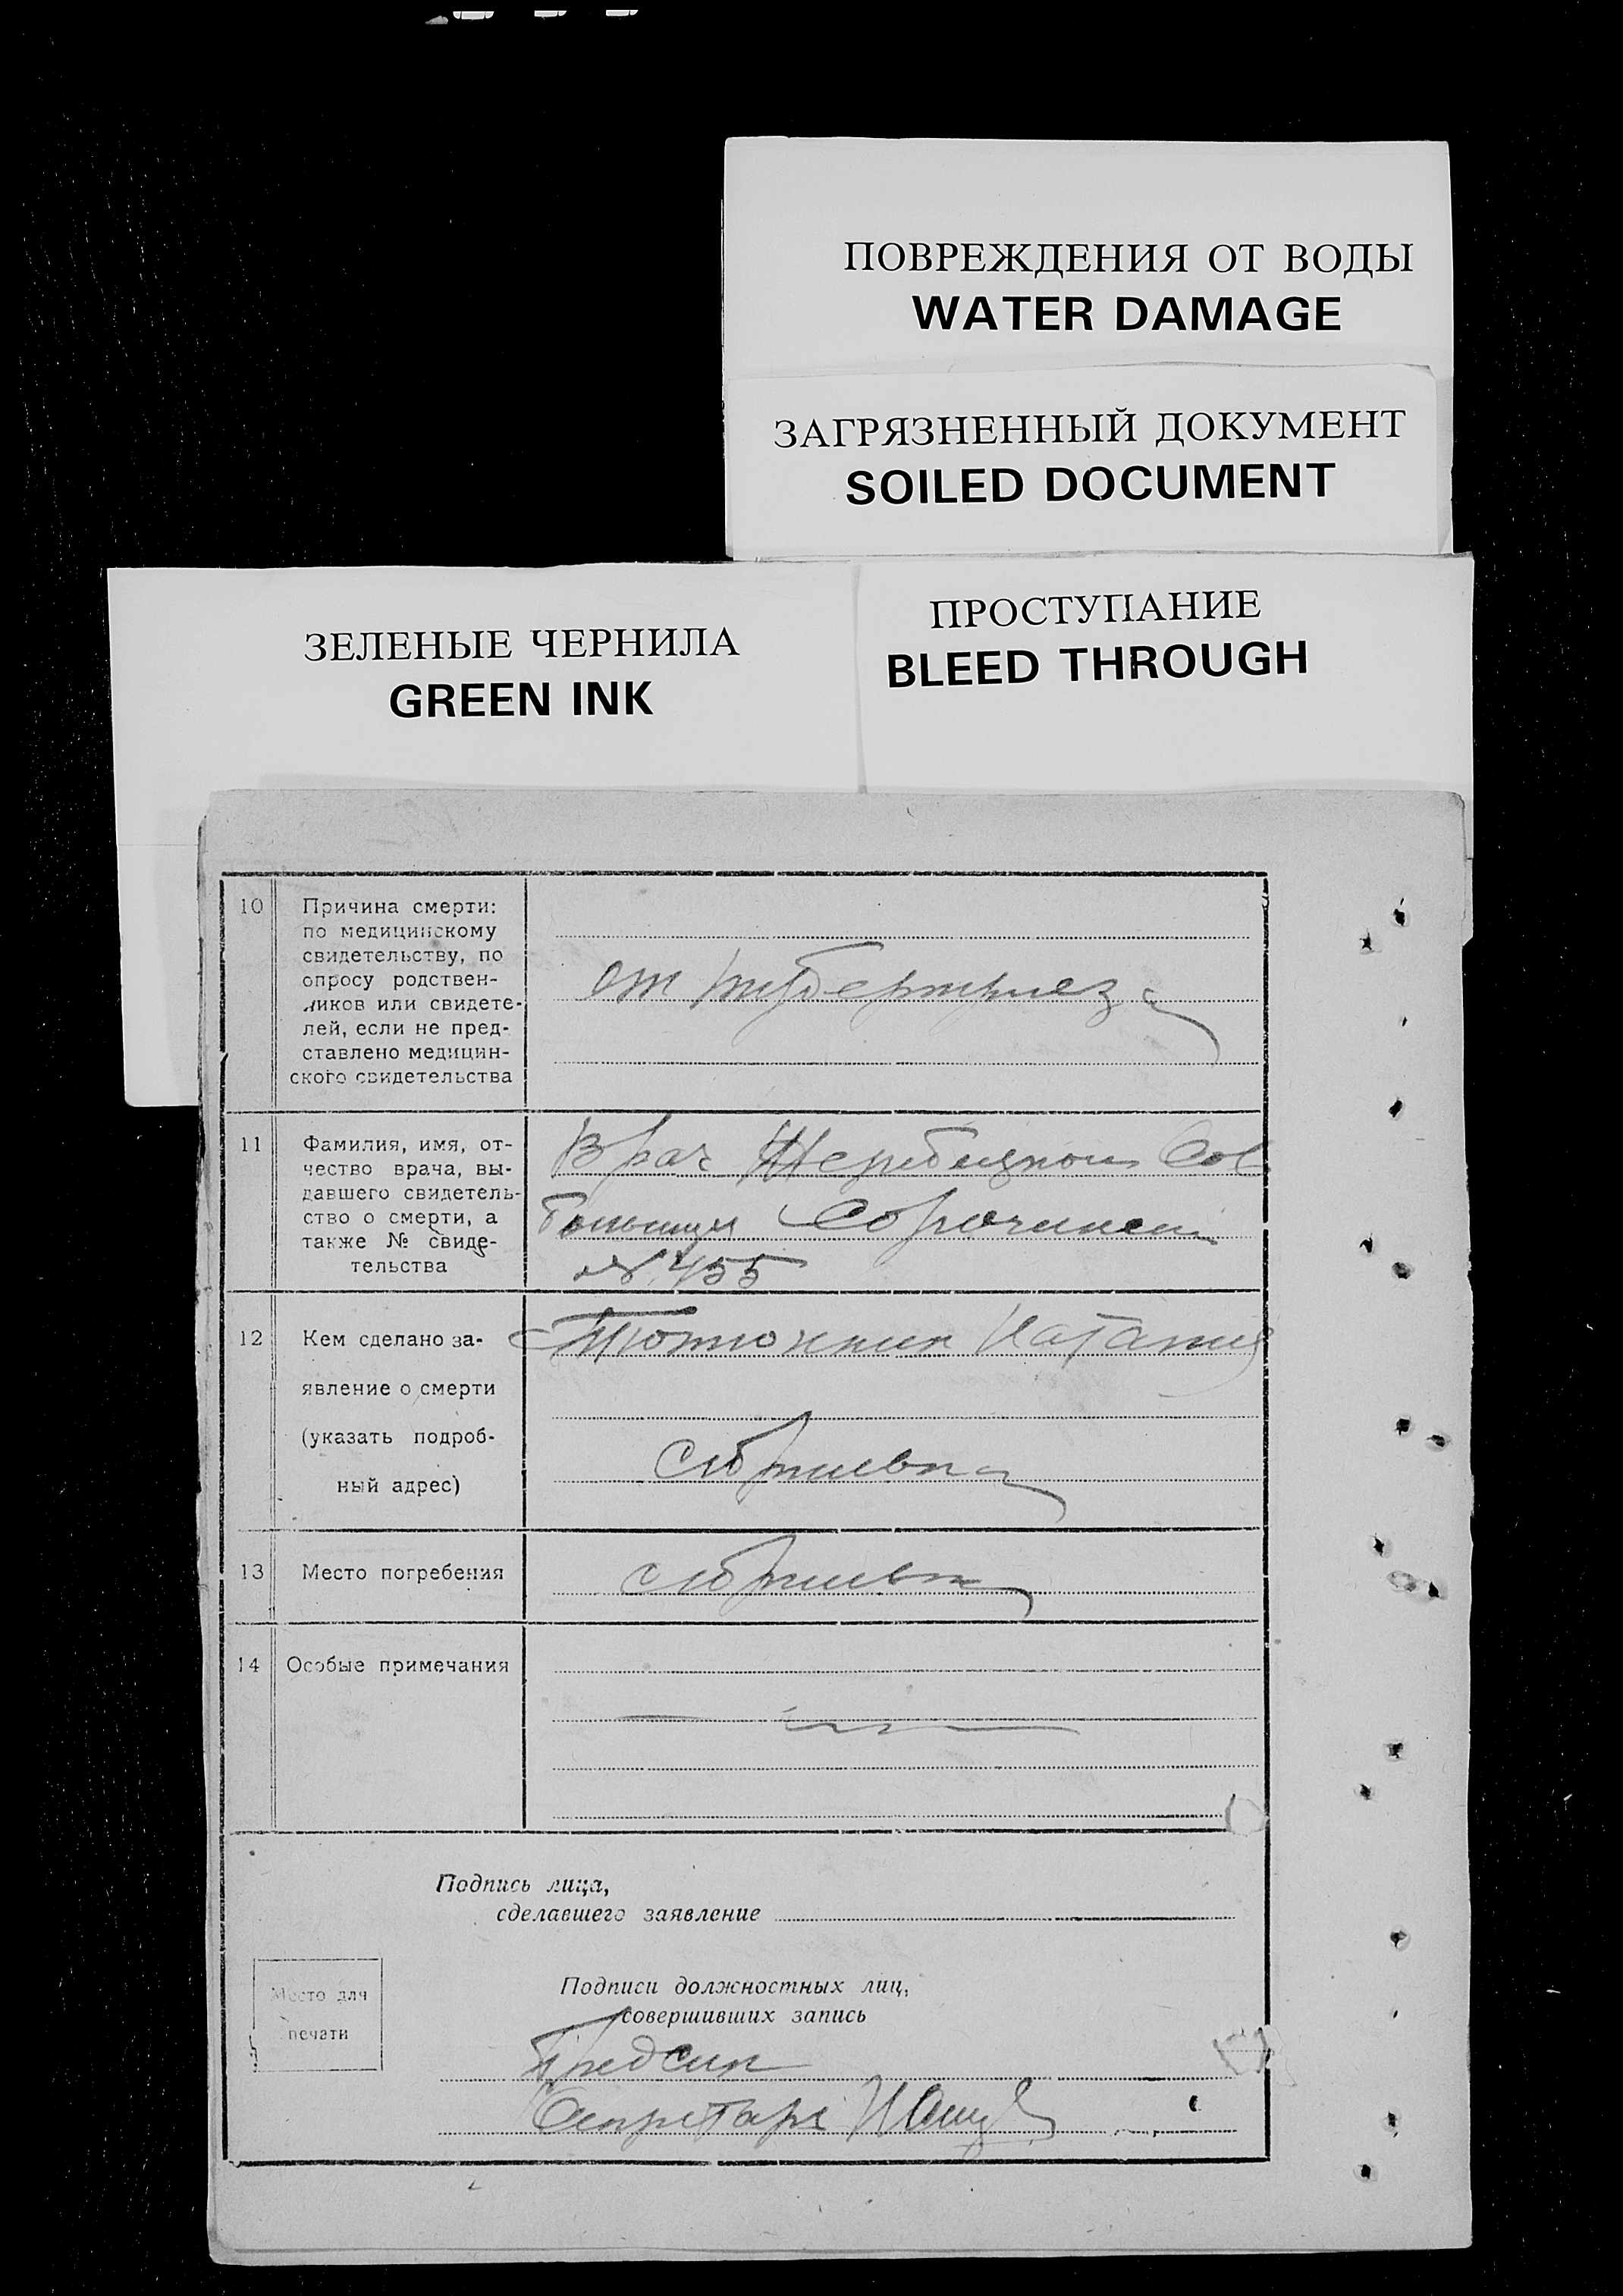 ПОВРЕЖДЕНИЯ ОТ ВОДЫ
WATER DAMAGE
ЗАГРЯЗНЕННЫЙ ДОКУМЕНТ
SOILED DOCUMENT
ЗЕЛЕНЫЕ ЧЕРНИЛА
GREEN INK
ПРОСТУПАНИЕ
BLEED THROUGH
10
Причина смерти:
по медицинскому
свидетельству, по
опросу родствен-
ников или свидете-
лей, если не пред-
ставлено медицин-
ского свидетельства
от
11
Фамилия, имя, от-
чество врача, вы-
давшего свидетель-
ство о смерти, а
также № свиде-
тельства
Врач
№ 455
12
Кем сделано за-
явление о смерти
(указать подроб-
ный адрес)
13
Место погребения
14
Особые примечания
Подпись лица,
сделавшего заявление
Место для
печати
Подписи должностных лиц,
совершивших запись
Секретарь